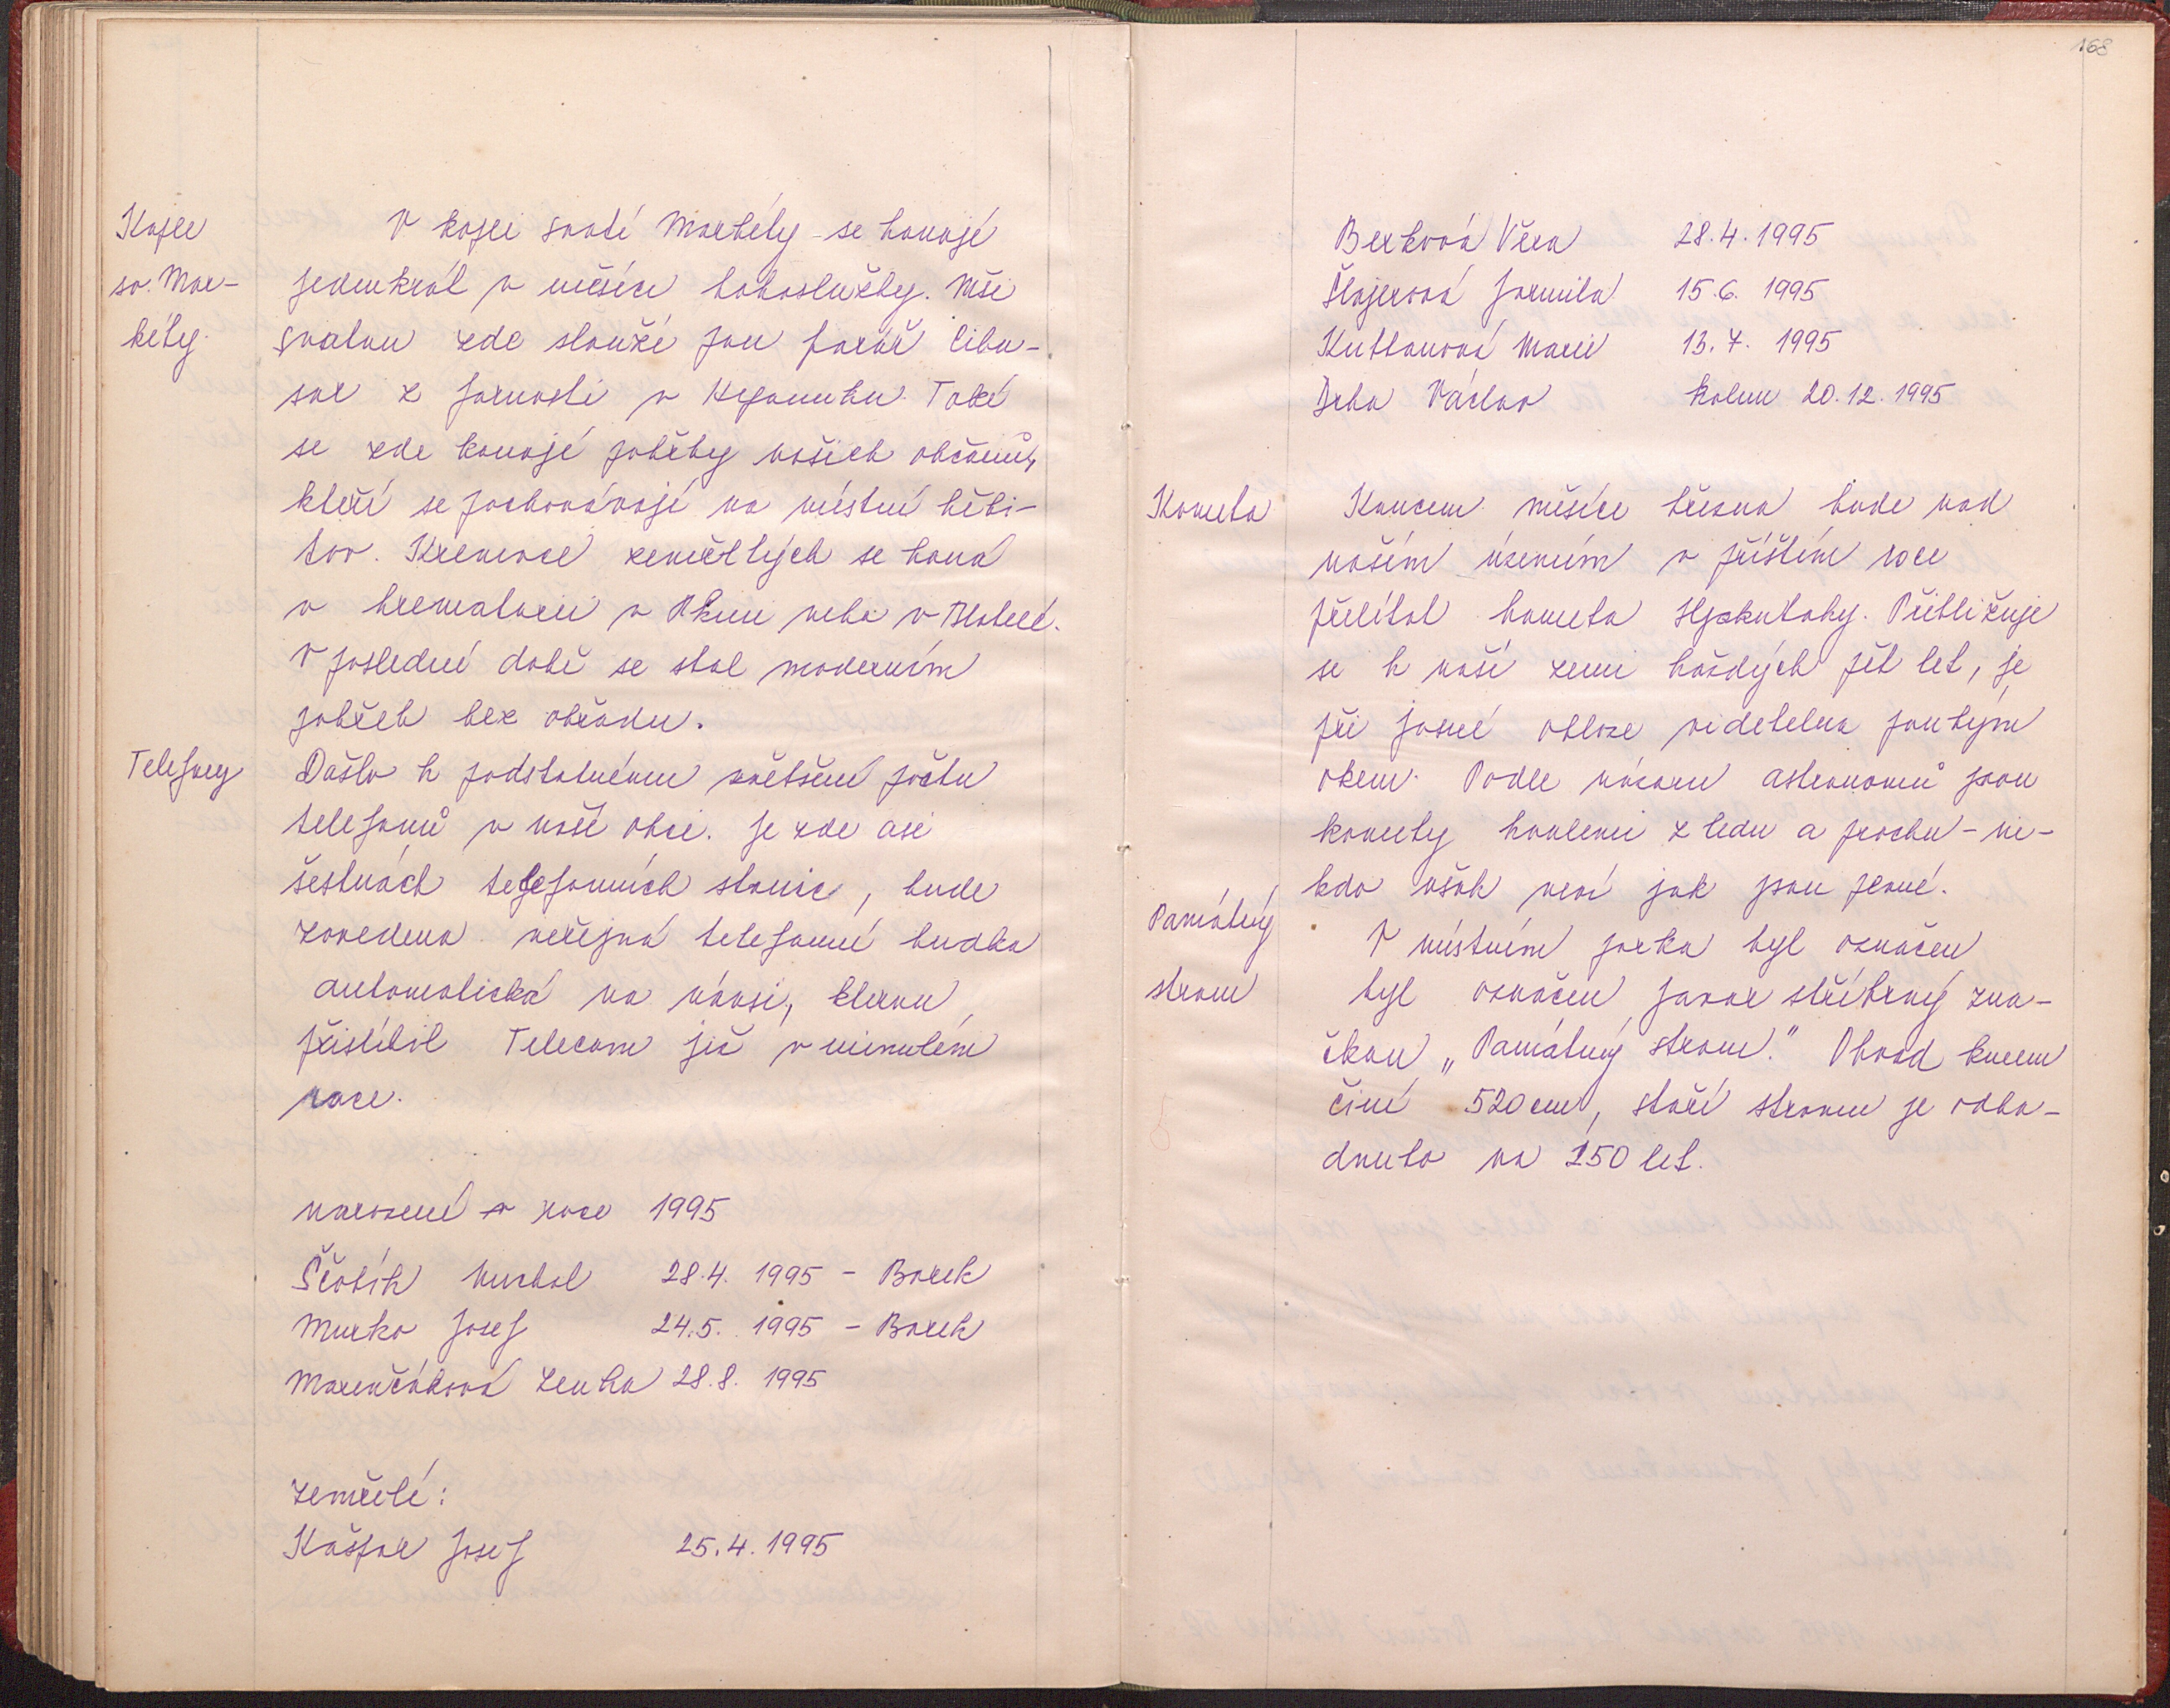 Kaple
sv. Mar-
kéty.
V kapli svaté Markéty se konají
jedenkrát v měsíci bohoslužby. Mši
svatou zde slouží pan farář Cibu-
lar z farnosti v Nepomuku. Také
se zde konají pohřby našich občanů,
kteří se pochovávají na místní hřbi-
tov. Kremace zemřelých se koná
v krematoriu v Plzni nebo v Blatné.
V poslední době se stal moderním
pohřeb bez obřadu.
Telefony
Došlo k podstatnému zvětšení počtu
telefonů v naší obci. Je zde asi
šestnáct telefonních stanic, bude
zavedena veřejná telefonní budka
automatická na návsi, kterou
přislíbil Telecom již v minulém
roce.
narození v roce 1995
Ščobík Michal 28.4. 1995 - Borek
Murko Josef 24.5. 1995 - Borek
Marenčáková Lenka 28.8. 1995
zemřelí:
Kašpar Josef 25.4. 1995
168
Berková Věra 28.4. 1995
Šlajerová Jarmila 15.6. 1995
Kutlanová Marie 13.7. 1995
Drha Václav kolem 20.12. 1995
Kometa
Koncem měsíce března bude nad
naším územím v příštím roce
přelítat kometa Hyakutaky. Přibližuje
se k naší zemi každých pět let, je
při jasné obloze viditelna pouhým
okem. Podle názoru astronomů jsou
komety koulemi z ledu a prachu - ni-
kdo však neví jak jsou pevné.
Památný
strom
V místním parku byl označen
byl označen javor stříbrný zna-
čkou „Památný strom." Obvod kmene
činí 520 cm, stáří stromu je odha-
dnuto na 150 let.